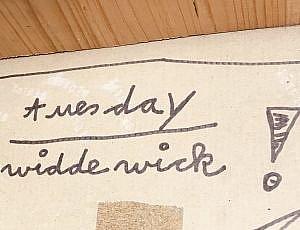 tuesday
widdewick
!